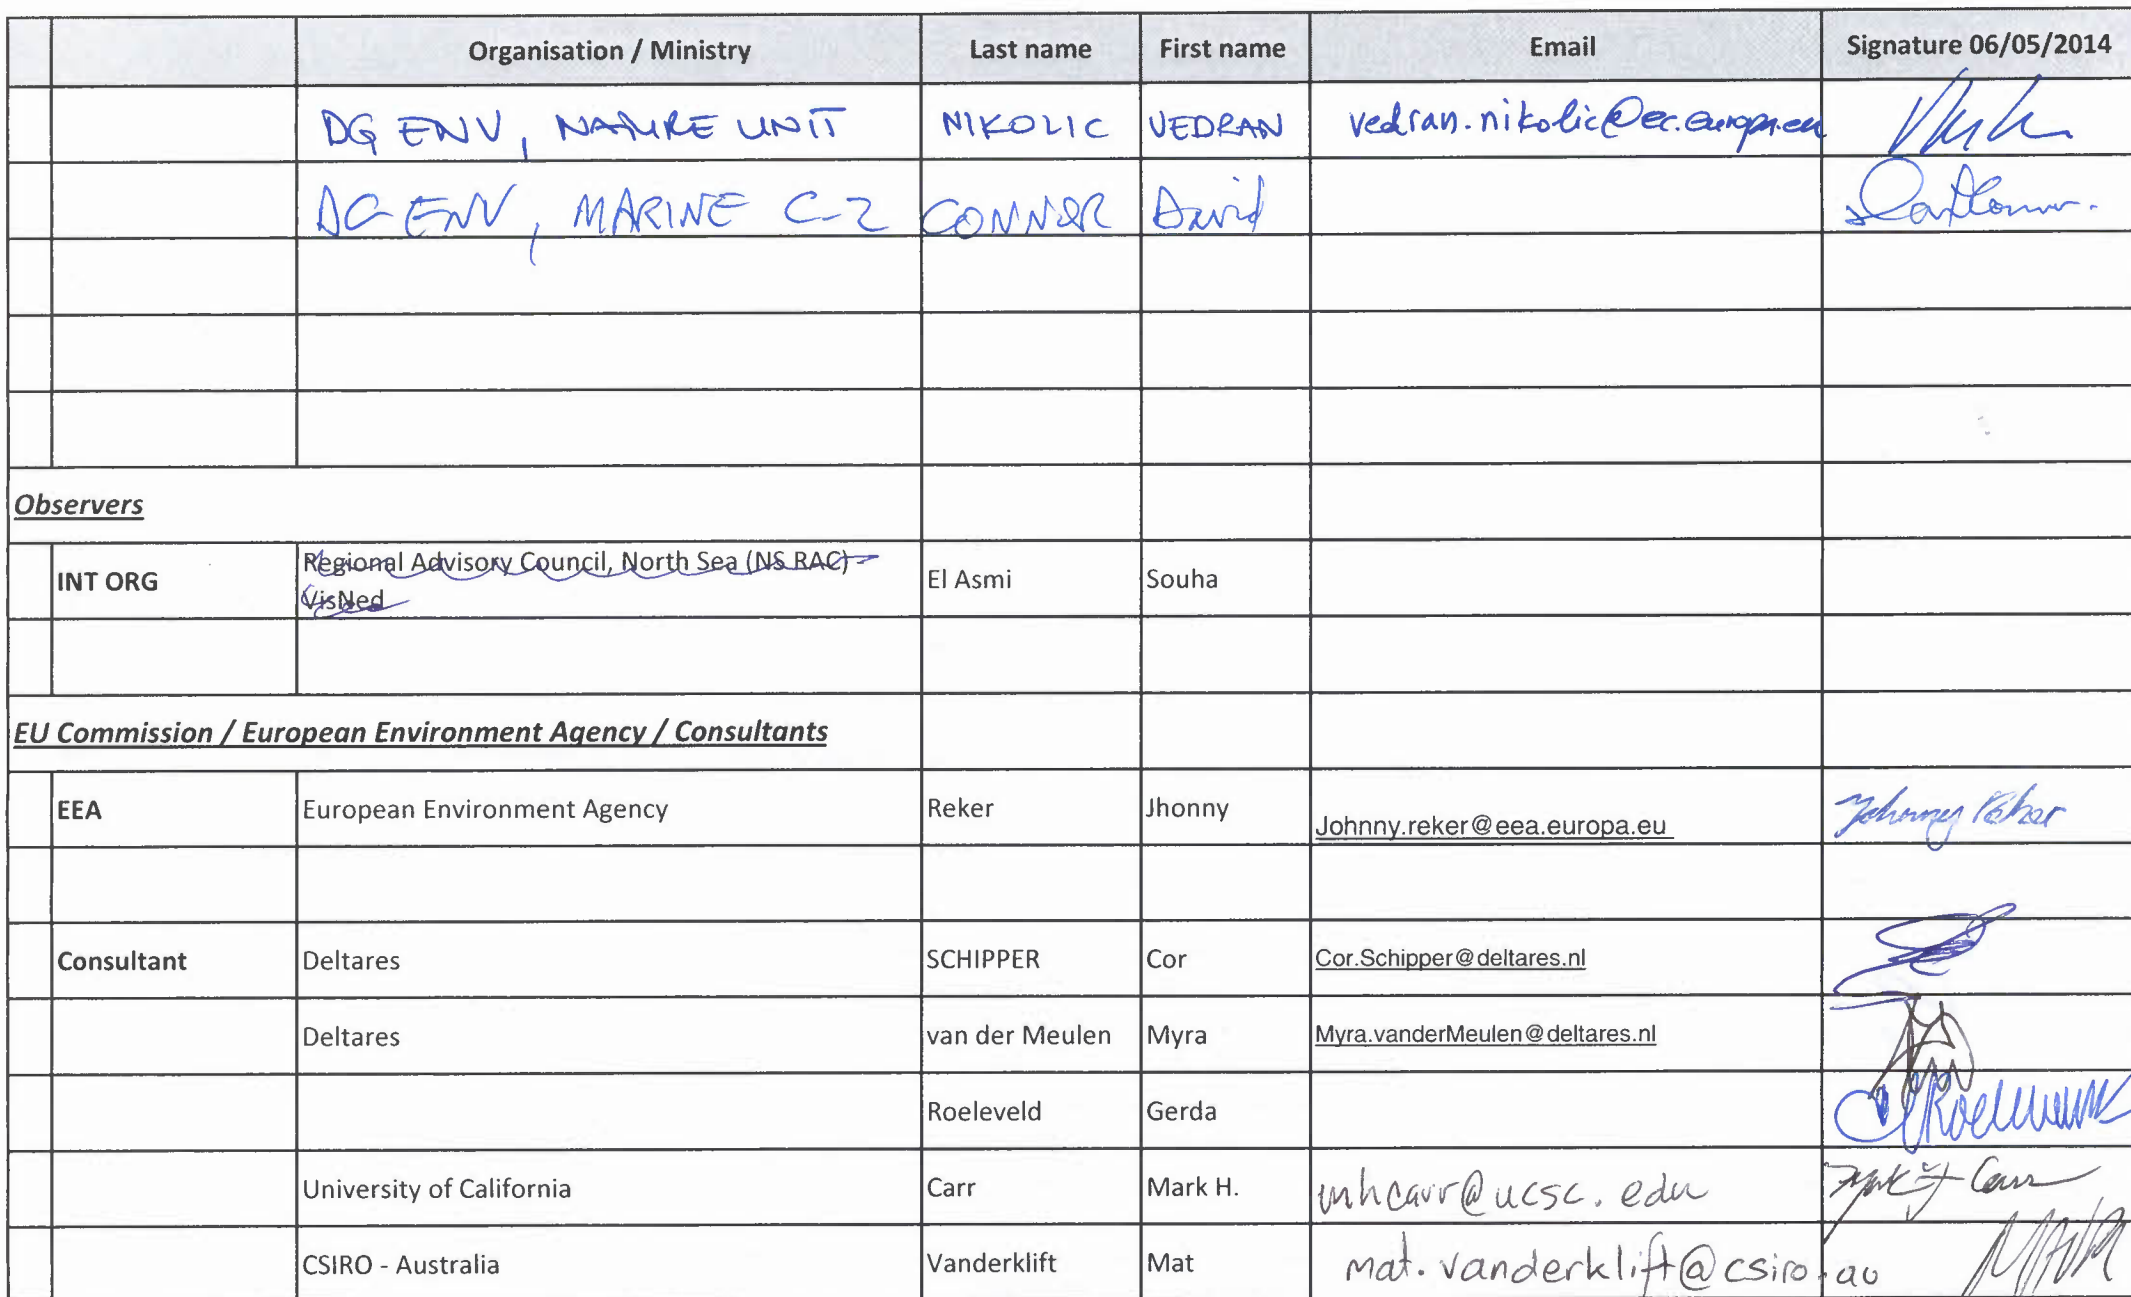 Organisation / Ministry Last name First name Email Signature 06/05/2014
DG ENV, NATURE UNIT NIKOLIC VEDRAN vedran.nikolic@ec.europa.eu
DG ENV, MARINE C-2 CONNOR David
Observers
INT ORG Regional Advisory Council, North Sea (NS RAC) - El Asmi Souha
VisNed
EU Commission / European Environment Agency / Consultants
EEA European Environment Agency Reker Jhonny Johnny.reker@eea.europa.eu Johnny Reker
Consultant Deltares SCHIPPER Cor Cor.Schipper@deltares.nl
Deltares van der Meulen Myra Myra.vanderMeulen@deltares.nl
Roeleveld Gerda
University of California Carr Mark H. mhcarr@ucsc.edu Mark H Carr
CSIRO - Australia Vanderklift Mat mat.vanderklift@csiro.au